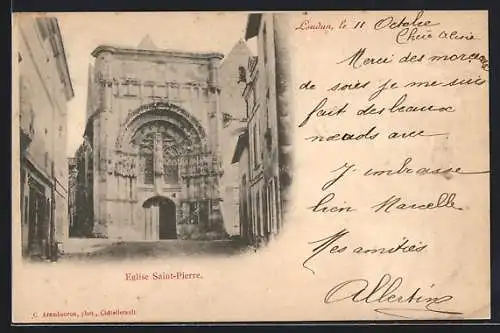 Loudun, le 11 Octobre
Chère Alexia
Merci des morceaux
de soies je me suis
fait des beaux
nœuds avec
J'embrasse
bien Marcelle
Mes amitiés
Albertine
Eglise Saint-Pierre.
C. Arambourou, phot., Châtellerault